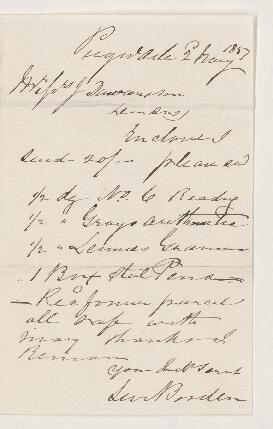 Pugwash 2 May 1857
Messrs J Dawson & Son
Enclosed I
send 20/- please send
1/2 dz No. 6 Reading
1/2 " Grays Arithmetic
1/2 " Lennies Grammar
1 Box Steel Pens
Recd former parcel
all safe with
many thanks I
Remain
Your Obt Servt
Levi Borden